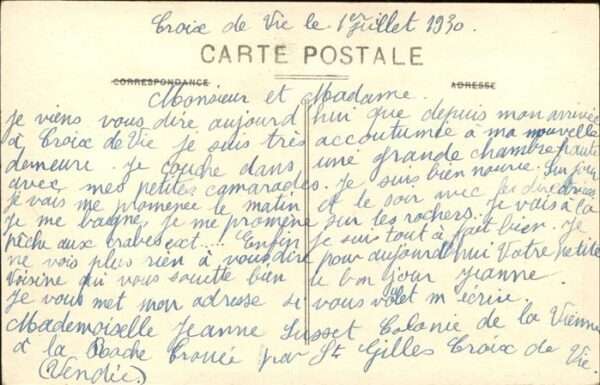 Croix de Vie le 1er Juillet 1930.
CARTE POSTALE
CORRESPONDANCE
ADRESSE
Monsieur et Madame.
je viens vous dire aujourd'hui que depuis mon arrivée
à Croix de Vie je suis très accoutumée à ma nouvelle
demeure. Je couche dans une grande chambre haute
avec mes petites camarades. Je suis bien nourie. Le jour
je vais me promener le matin et le soir avec les directrices
je me baigne, je me promène sur les rochers. Je vais à la
pêche aux crabes ect.... Enfin je suis tout à fait bien. Je
ne vois plus rien à vous dire pour aujourd'hui Votre petite
Voisine qui vous souette bien le bon jour Jeanne.
Je vous met mon adresse si vous voulet m'écrire.
Mademoiselle Jeanne Susset Colonie de la Vienne
à la Roche Trouée par St Gilles Croix de Vie.
(Vendée.)